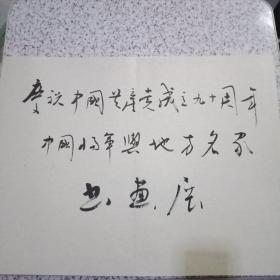 庆祝中國共產党成立九十周年
中國将军與地方名家
书畫展